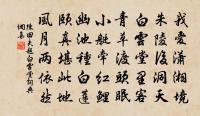 我愛瀟湘境
朱陵後洞天
白雲堂里客
青草渡頭眠
小艇
幽池種白蓮
頤真堪此地
風月两依然
陳田夫題白雲堂詞典
網集